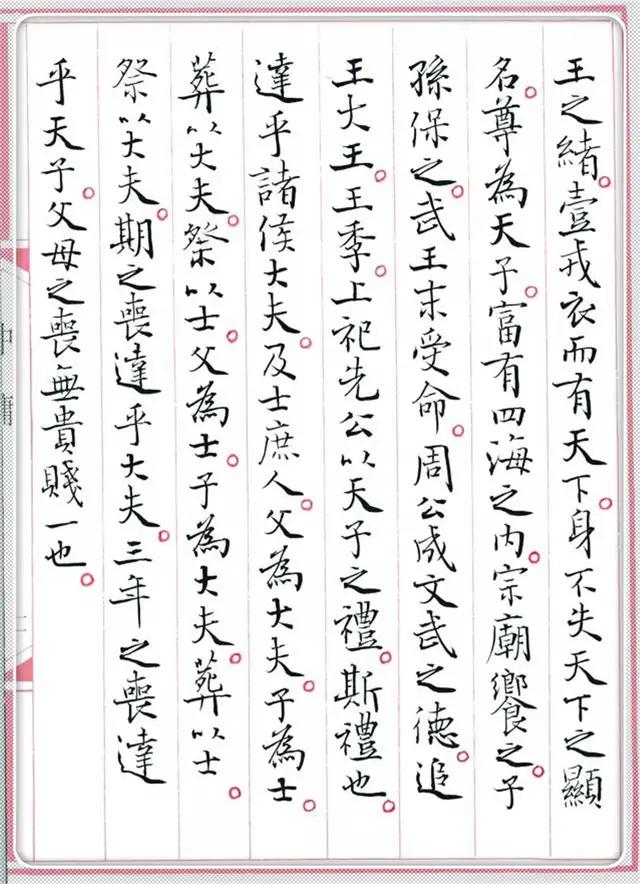 王之緒。壹戎衣而有天下。身不失天下之顯
名。尊為天子。富有四海之内。宗廟饗之。子
孫保之。武王末受命。周公成文武之德。追
王大王。王季。上祀先公以天子之禮。斯禮也。
達乎諸侯大夫。及士庶人。父為大夫。子為士。
葬以大夫。祭以士。父為士。子為大夫。葬以士。
祭以大夫。期之喪達乎大夫。三年之喪達
乎天子。父母之喪無貴賤一也。
中庸